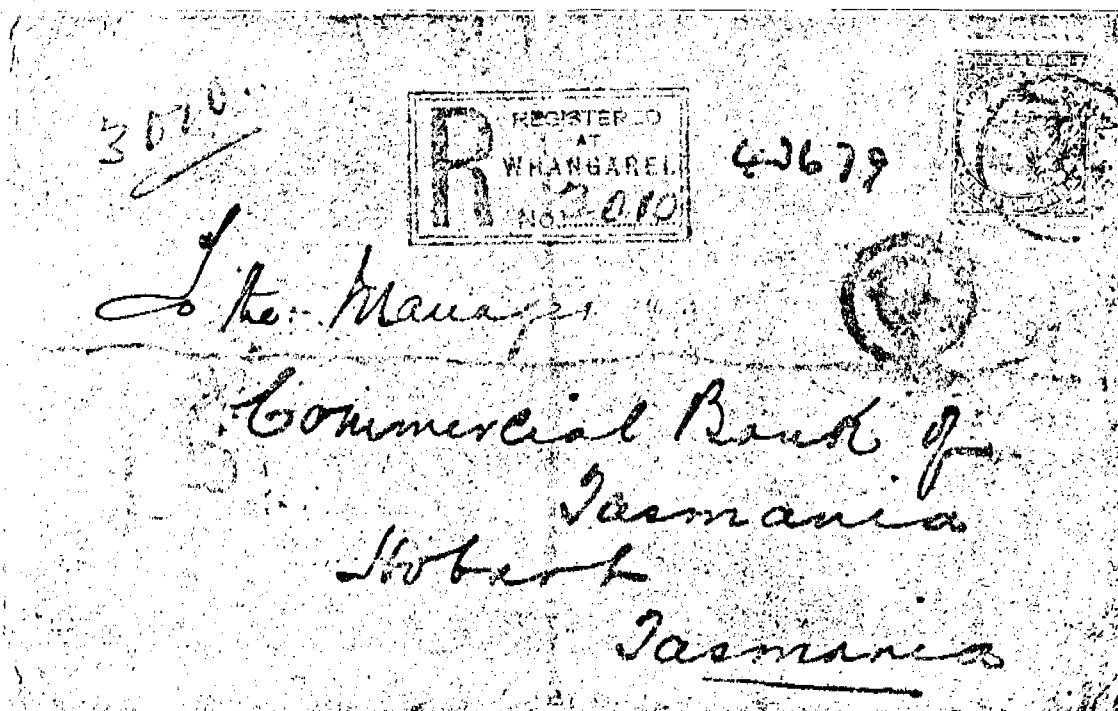 3010
R
REGISTERED
AT
WHANGAREI
No. 3010
43679
To the Manager
Commercial Bank of
Tasmania
Hobart
Tasmania